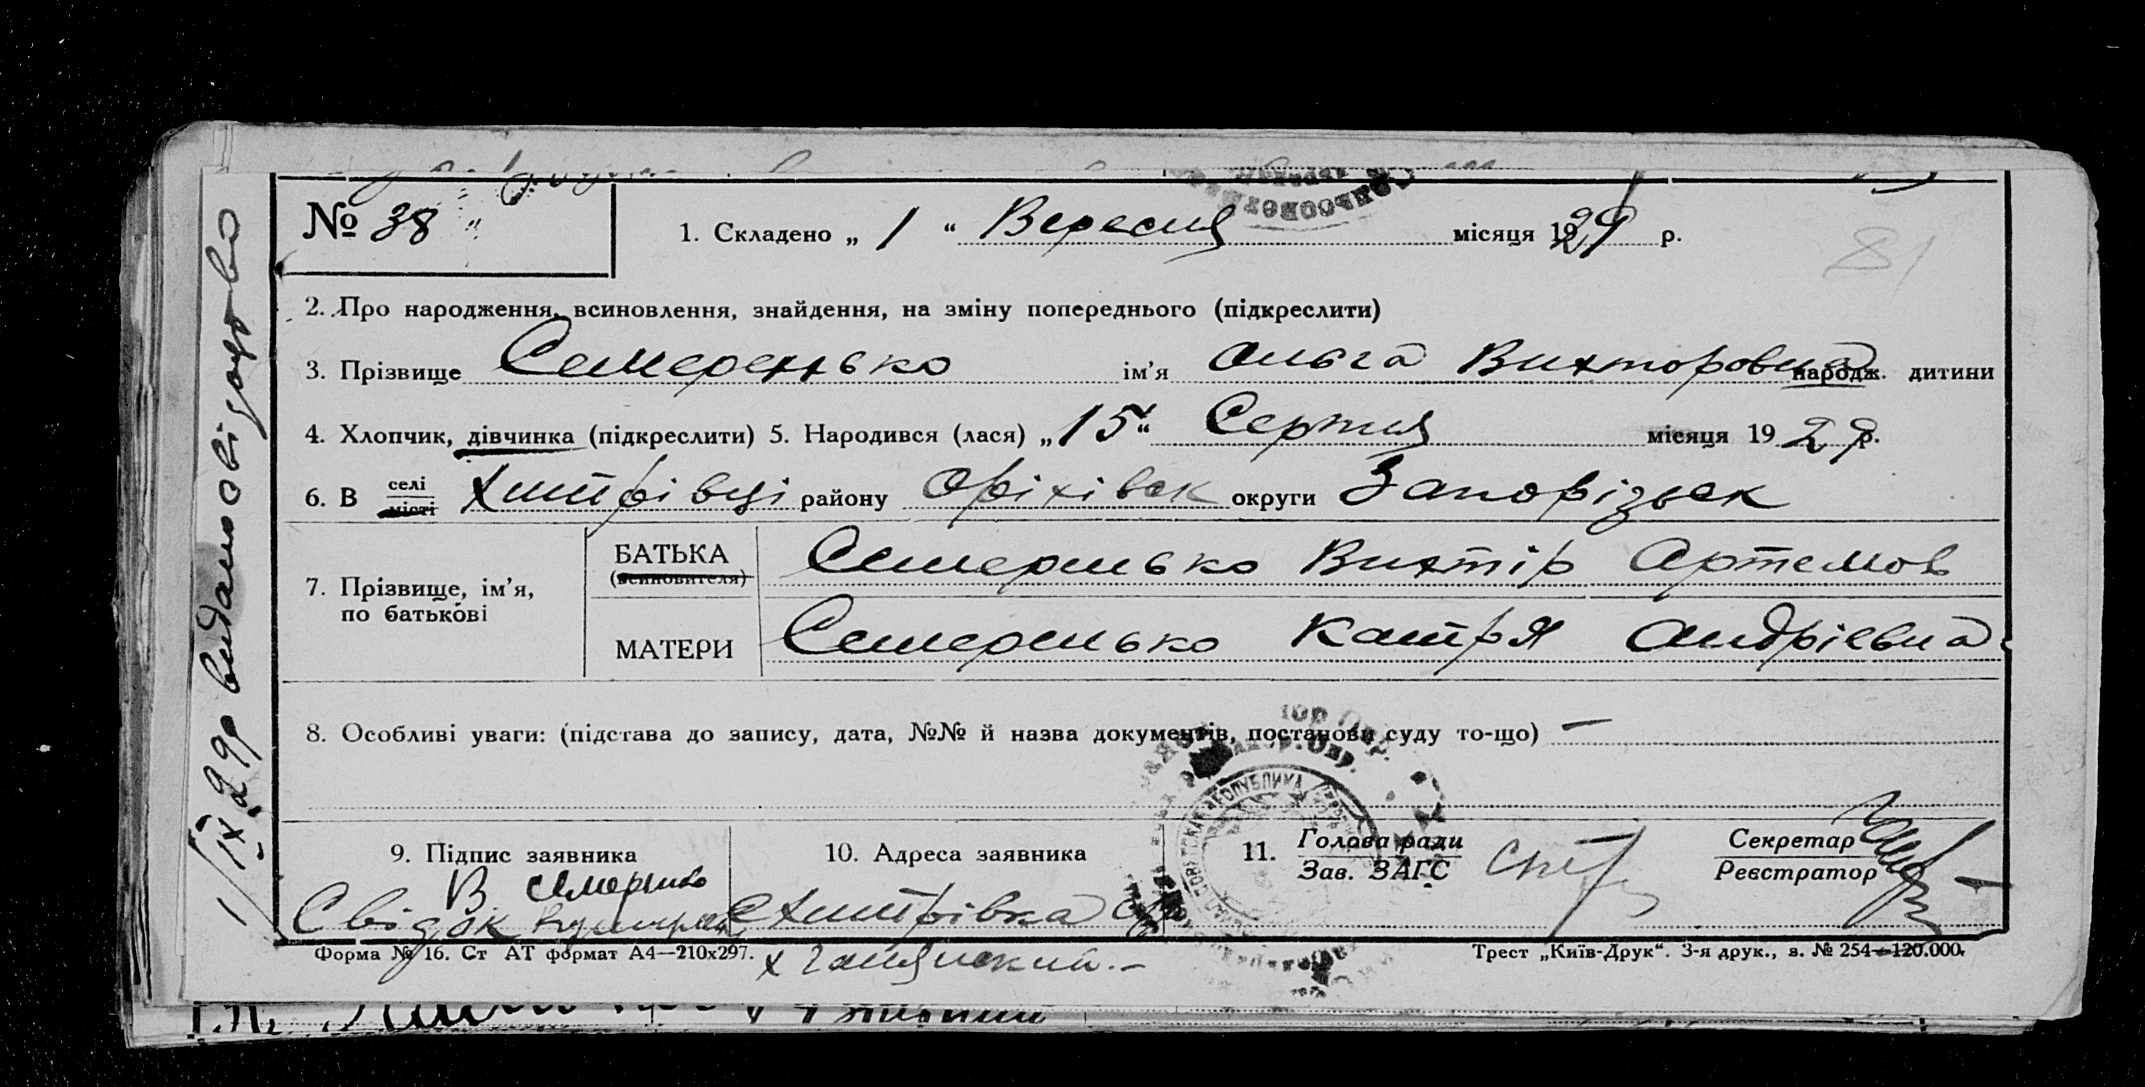 № 38
1. Складено „ 1 “ Вересня місяця 1929 р.
81
2. Про народження, всиновлення, знайдення, на зміну попереднього (підкреслити)
3. Прізвище Семеренько ім’я Ольга Вихторовна народж. дитини
4. Хлопчик, дівчинка (підкреслити) 5. Народився (лася) „15“ Серпня місяця 1929 р.
6. В селі місті Хитрівці району Оріхівськ округи Запорізьск
7. Прізвище, ім’я, по батькові
БАТЬКА (всиновителя) Семеренько Вихтір Артемов
МАТЕРИ Семеренько Катря Андріевна
8. Особливі уваги: (підстава до запису, дата, №№ й назва документів, постанови суду то-що) —
9. Підпис заявника
В Семеренько
Свідок
10. Адреса заявника
Хитрівка
11. Голова ради
Зав. ЗАГС
Секретар
Реєстратор
Форма № 16. Ст АТ формат А4—210х297.
Трест „Київ-Друк“. 3-я друк., з. № 254—120.000.
1/IX 29р видано свідоцтво